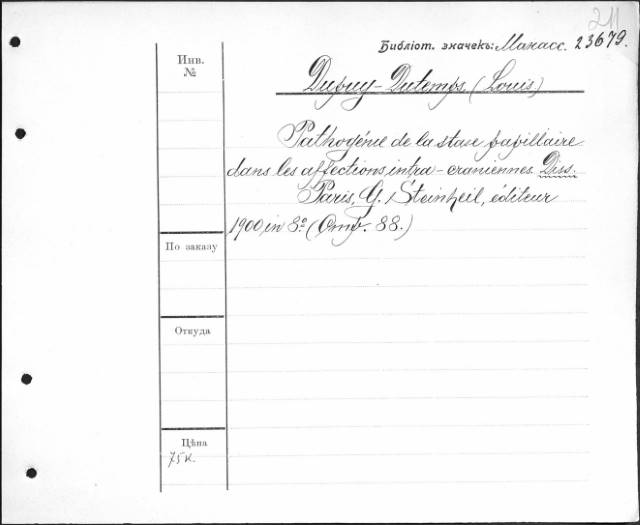 211
Библіот. значекъ: Манасс. 23679.
Инв.
№
Dupuy-Dutemps, (Louis.)
Pathogénie de la stase papillaire
dans les affections intra-craniennes. Diss.
Paris, G. Steinheil, éditeur
1900, in 8º (Стр. 88.)
По заказу
Откуда
Цѣна
75 к.